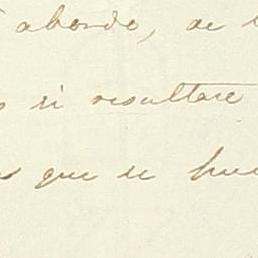 abordo, de
si resultare
que se hu